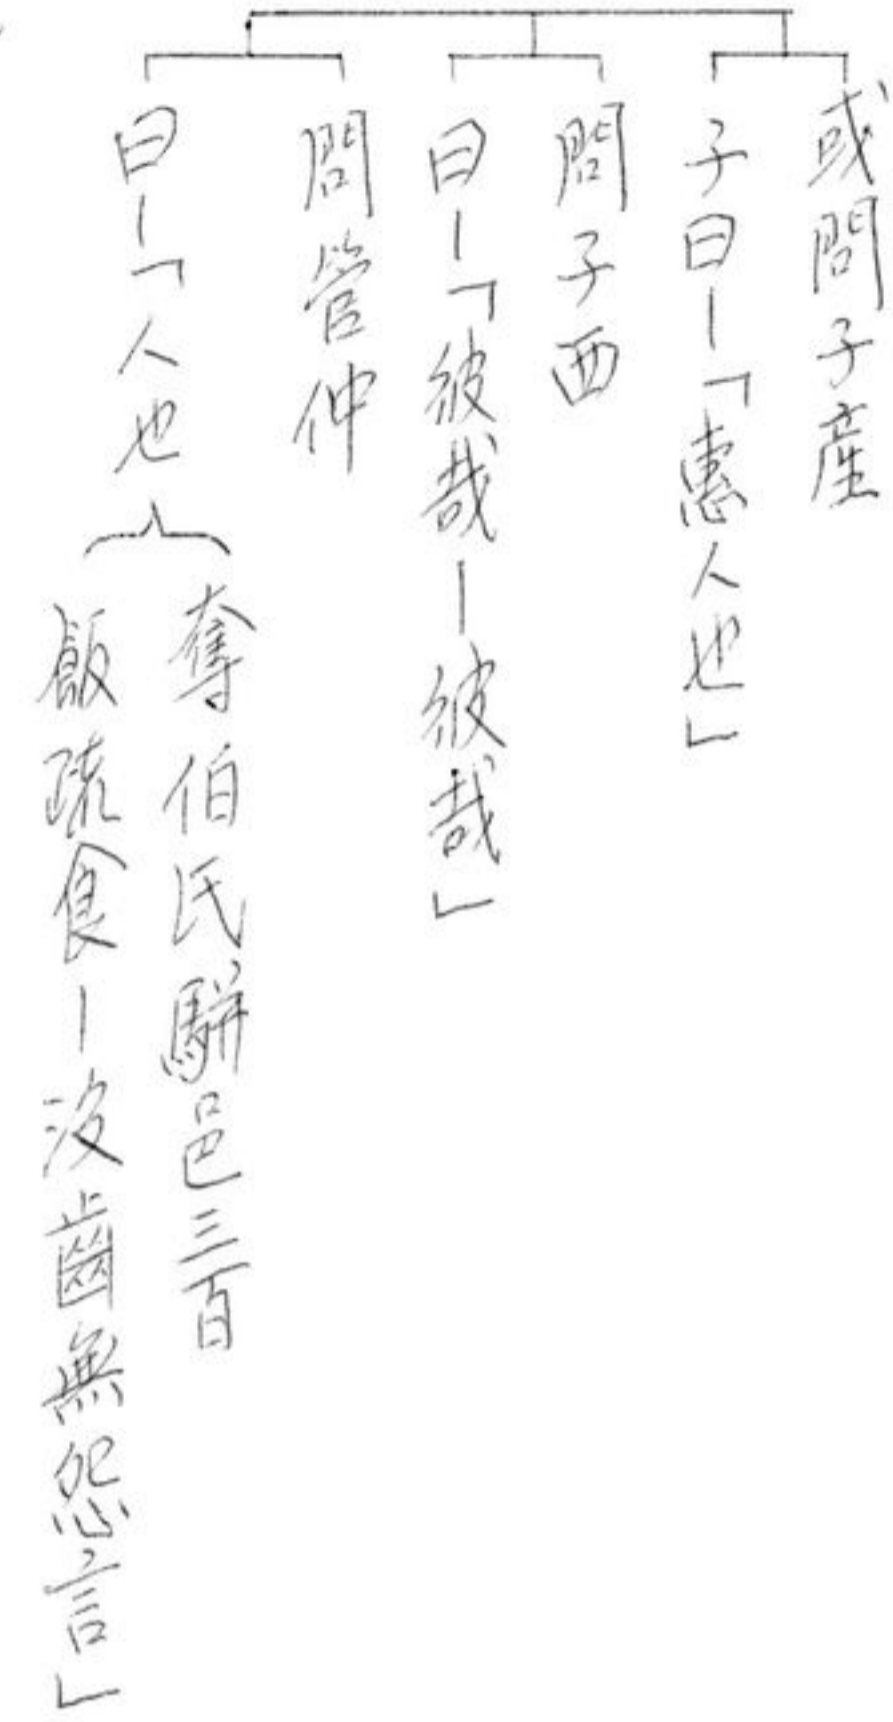 或問子產
子曰－「惠人也」
問子西
曰－「彼哉－彼哉」
問管仲
曰－「人也
奪伯氏駢邑三百
飯疏食－沒齒無怨言」